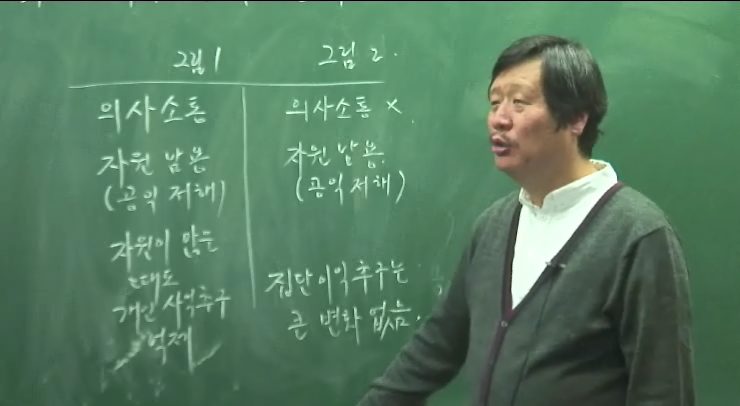 그림 1 그림 2.
의사소통 의사소통 ×
자원 남용 자원 남용
(공익 저해) (공익 저해)
자원이 많은
때도 집단이익추구는
개인 사익추구 큰 변화 없음.
억제